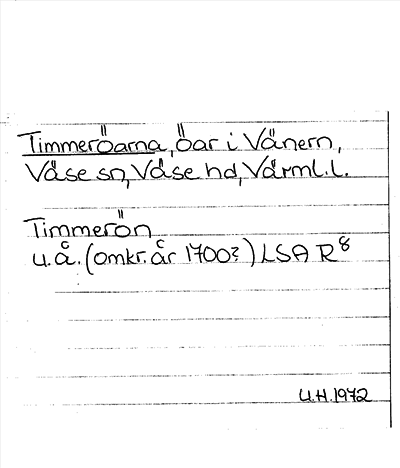 Timmeröarna, öar i Vänern,
Väse sn, Väse hd, Värml. l.
Timmerön
u. å. (omkr. år 1700?) LSA R⁸
U.H. 1972